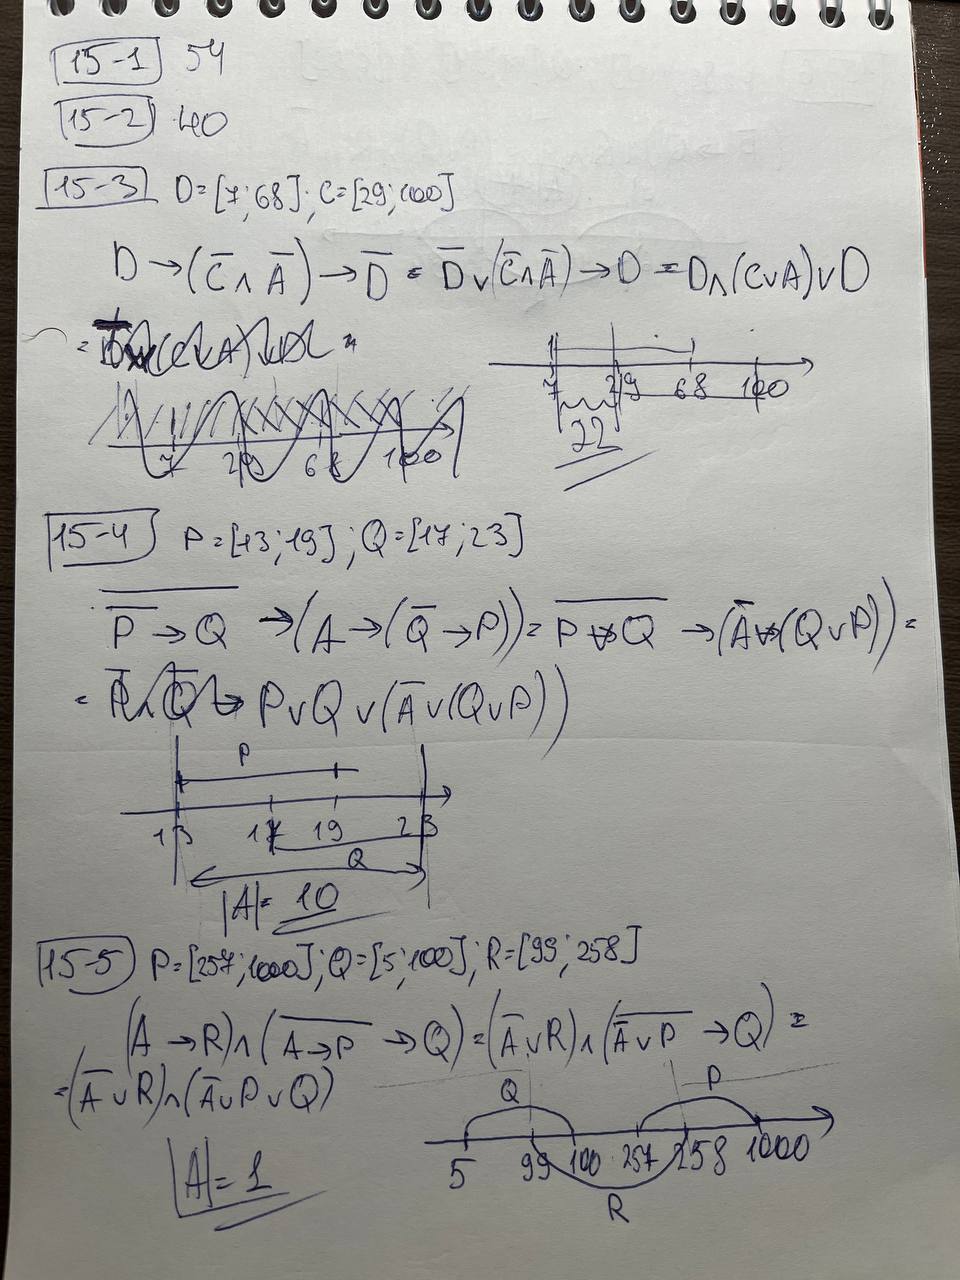 15-1 54
15-2 40
15-3 D=[7;68]; C=[29;100]
D→(C̅∧A̅)→D̅ = D̅∨(C̅∧A̅)→D = D∧(C∨A)∨D
=
7 29 68 100
22
7 29 68 100
15-4 P=[13;19]; Q=[17;23]
P̅→Q →(A→(Q̅→P)) = P∨Q →(A̅∨(Q∨P)) =
= P∨Q∨(A̅∨(Q∨P))
P
13 17 19 23
Q
|A|= 10
15-5 P=[257;1000]; Q=[5;100]; R=[99;258]
(A→R)∧(A→P →Q) = (A̅∨R)∧(A̅∨P →Q) =
=(A̅∨R)∧(A̅∨P∨Q)
Q P
5 99 100 257 258 1000
R
|A|= 1